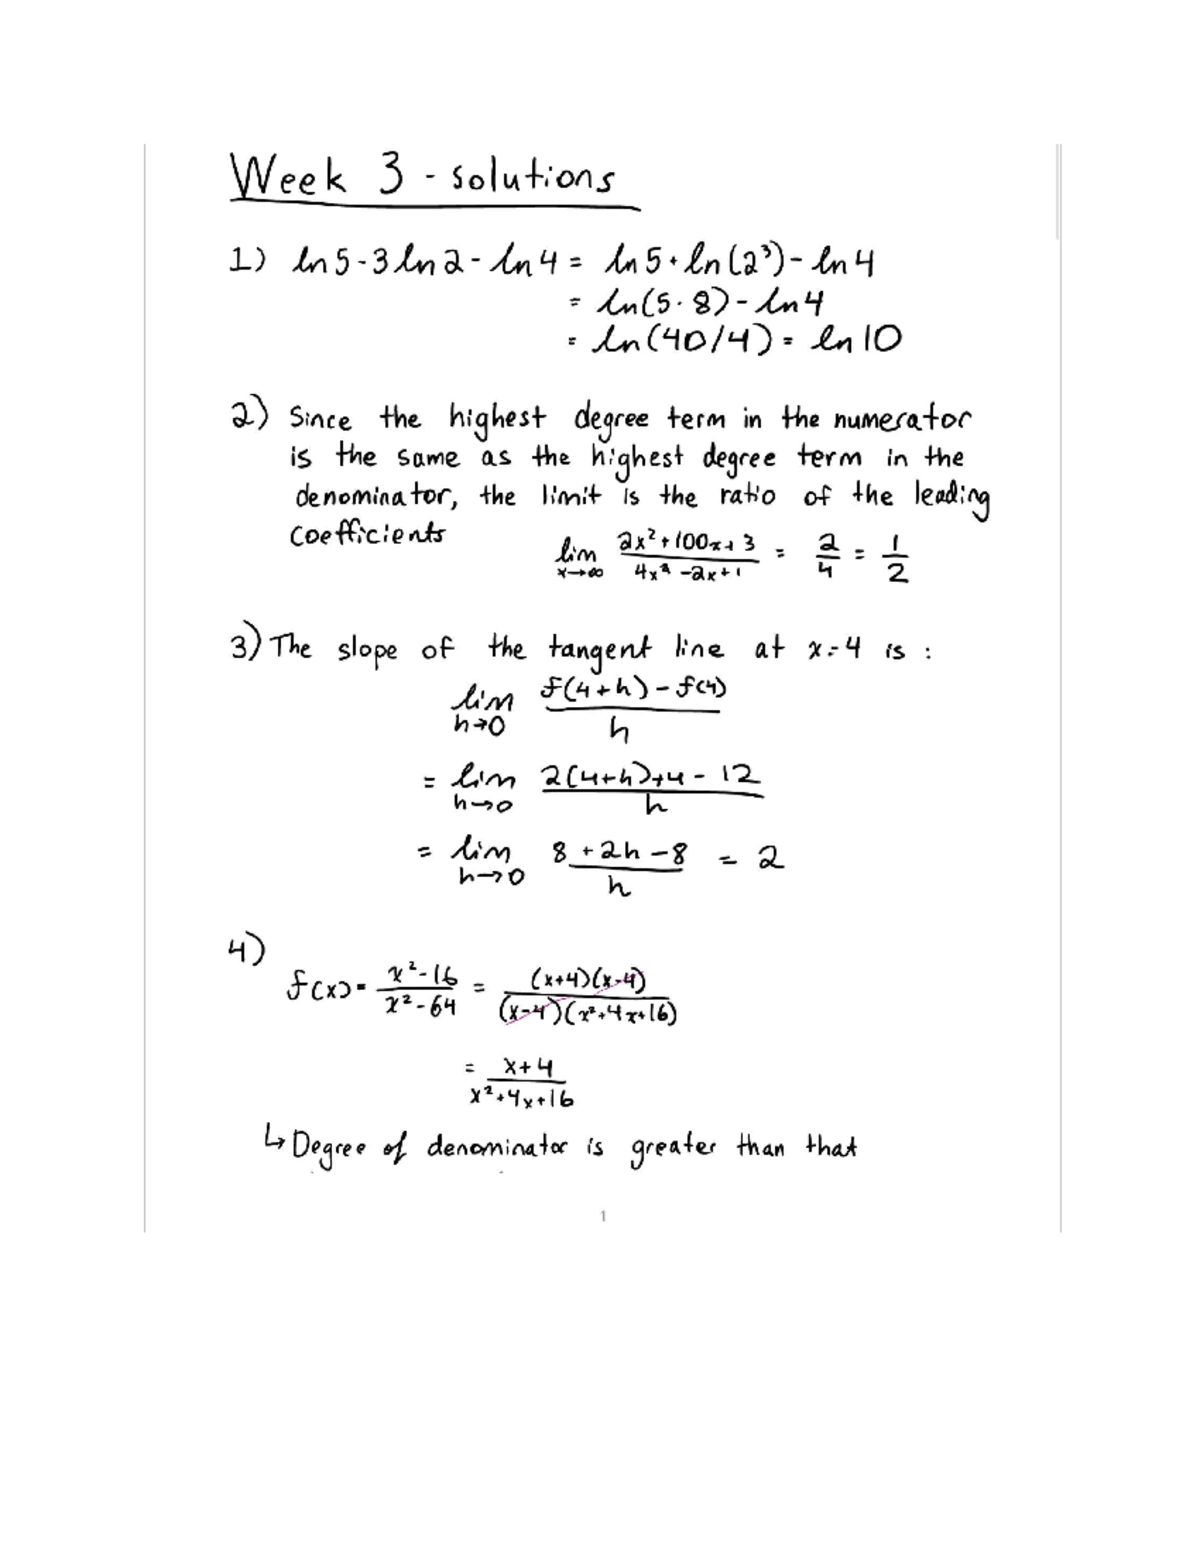 Week 3 - solutions
1) ln 5 - 3 ln 2 - ln 4 = ln 5 + ln (2³) - ln 4
= ln(5 · 8) - ln 4
= ln(40/4) = ln 10
2) Since the highest degree term in the numerator
is the same as the highest degree term in the
denominator, the limit is the ratio of the leading
coefficients
lim x→∞ (2x² + 100x + 3)/(4x² - 2x + 1) = 2/4 = 1/2
3) The slope of the tangent line at x = 4 is :
lim h→0 (f(4+h) - f(4))/h
= lim h→0 (2(4+h)+4 - 12)/h
= lim h→0 (8 + 2h - 8)/h = 2
4)
f(x) = (x² - 16)/(x² - 64) = (x+4)(x-4)/(x-4)(x²+4x+16)
= (x+4)/(x²+4x+16)
↳ Degree of denominator is greater than that
1